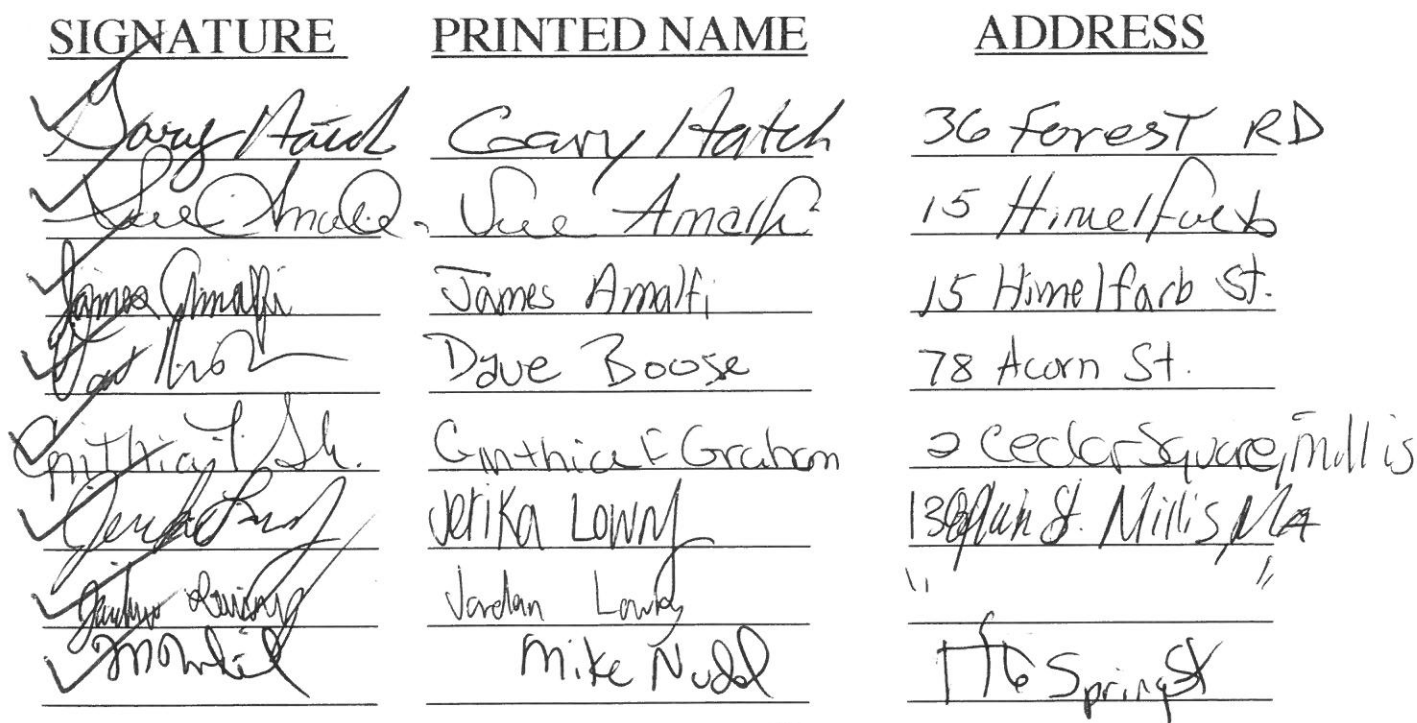 SIGNATURE PRINTED NAME ADDRESS
Gary Hatch Gary Hatch 36 Forest RD
Sue Amalfi Sue Amalfi 15 Himelfarb
James Amalfi James Amalfi 15 Himelfarb St.
Dave Boose 78 Acorn St.
Cynthia F. Cynthia F Graham 2 Cedar Square, Millis
Jerika Lowry Jerika Lowry St. Millis, MA
Jordan Lowry Jordan Lowry " "
Mike Nudd Spring St